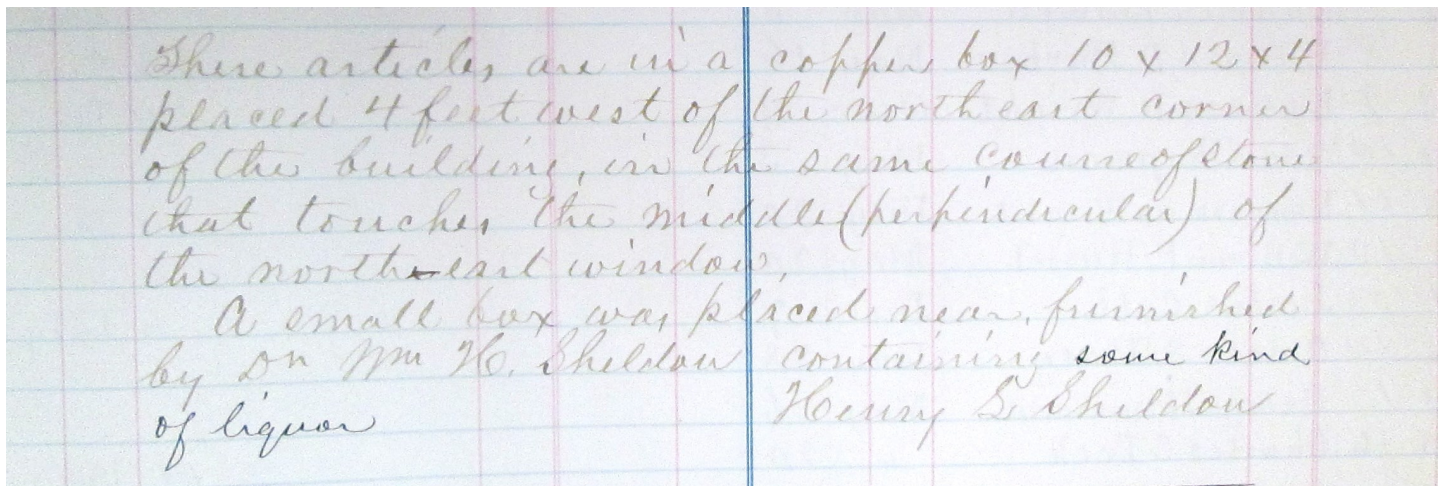 These articles are in a copper box 10 x 12 x 4
placed 4 feet west of the north east corner
of the building, in the same course of stone
that touches the middle (perpindicular) of
the north-east window,
A small box was placed near, furnished
by Dr Wm H. Sheldon containing some kind
of liquor Henry L Sheldon